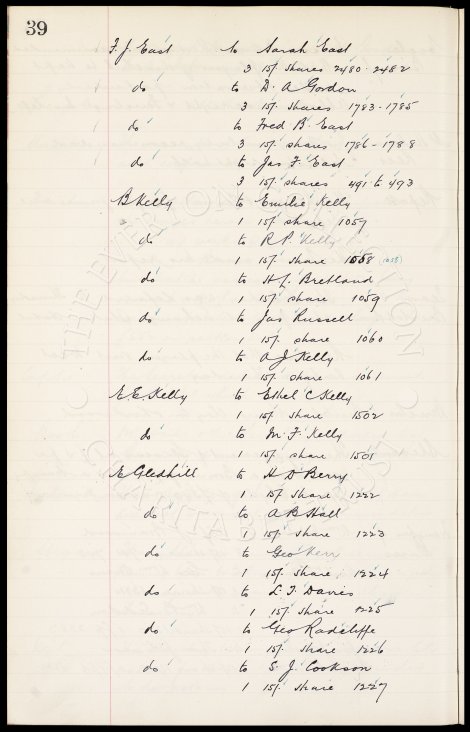 39
F. J. East to Sarah East
3 15/. shares 2480-2482
do to D. A Gordon
3 15/. shares 1783-1785
do to Fred B. East
3 15/. shares 1786-1788
do to Jas F. East
3 15/. shares 491 to 493
B Kelly to Emilie Kelly
1 15/. share 1057
do to R P. Kelly
1 15/. share 1058 (1058)
do to H L. Bretland
1 15/. share 1059
do to Jas Russell
1 15/. share 1060
do to A J Kelly
1 15/. share 1061
E. E. Kelly to Ethel C Kelly
1 15/. share 1502
do to M. F Kelly
1 15/. share 1501
E Gledhill to H D Berry
1 15/. share 1222
do to A B Hall
1 15/. share 1223
do to Geo Kerr
1 15/. share 1224
do to L. T. Davies
1 15/. share 1225
do to Geo Radcliffe
1 15/. share 1226
do to S. J. Cookson
1 15/. share 1227
THE EVERTON COLLECTION
CHARITABLE TRUST